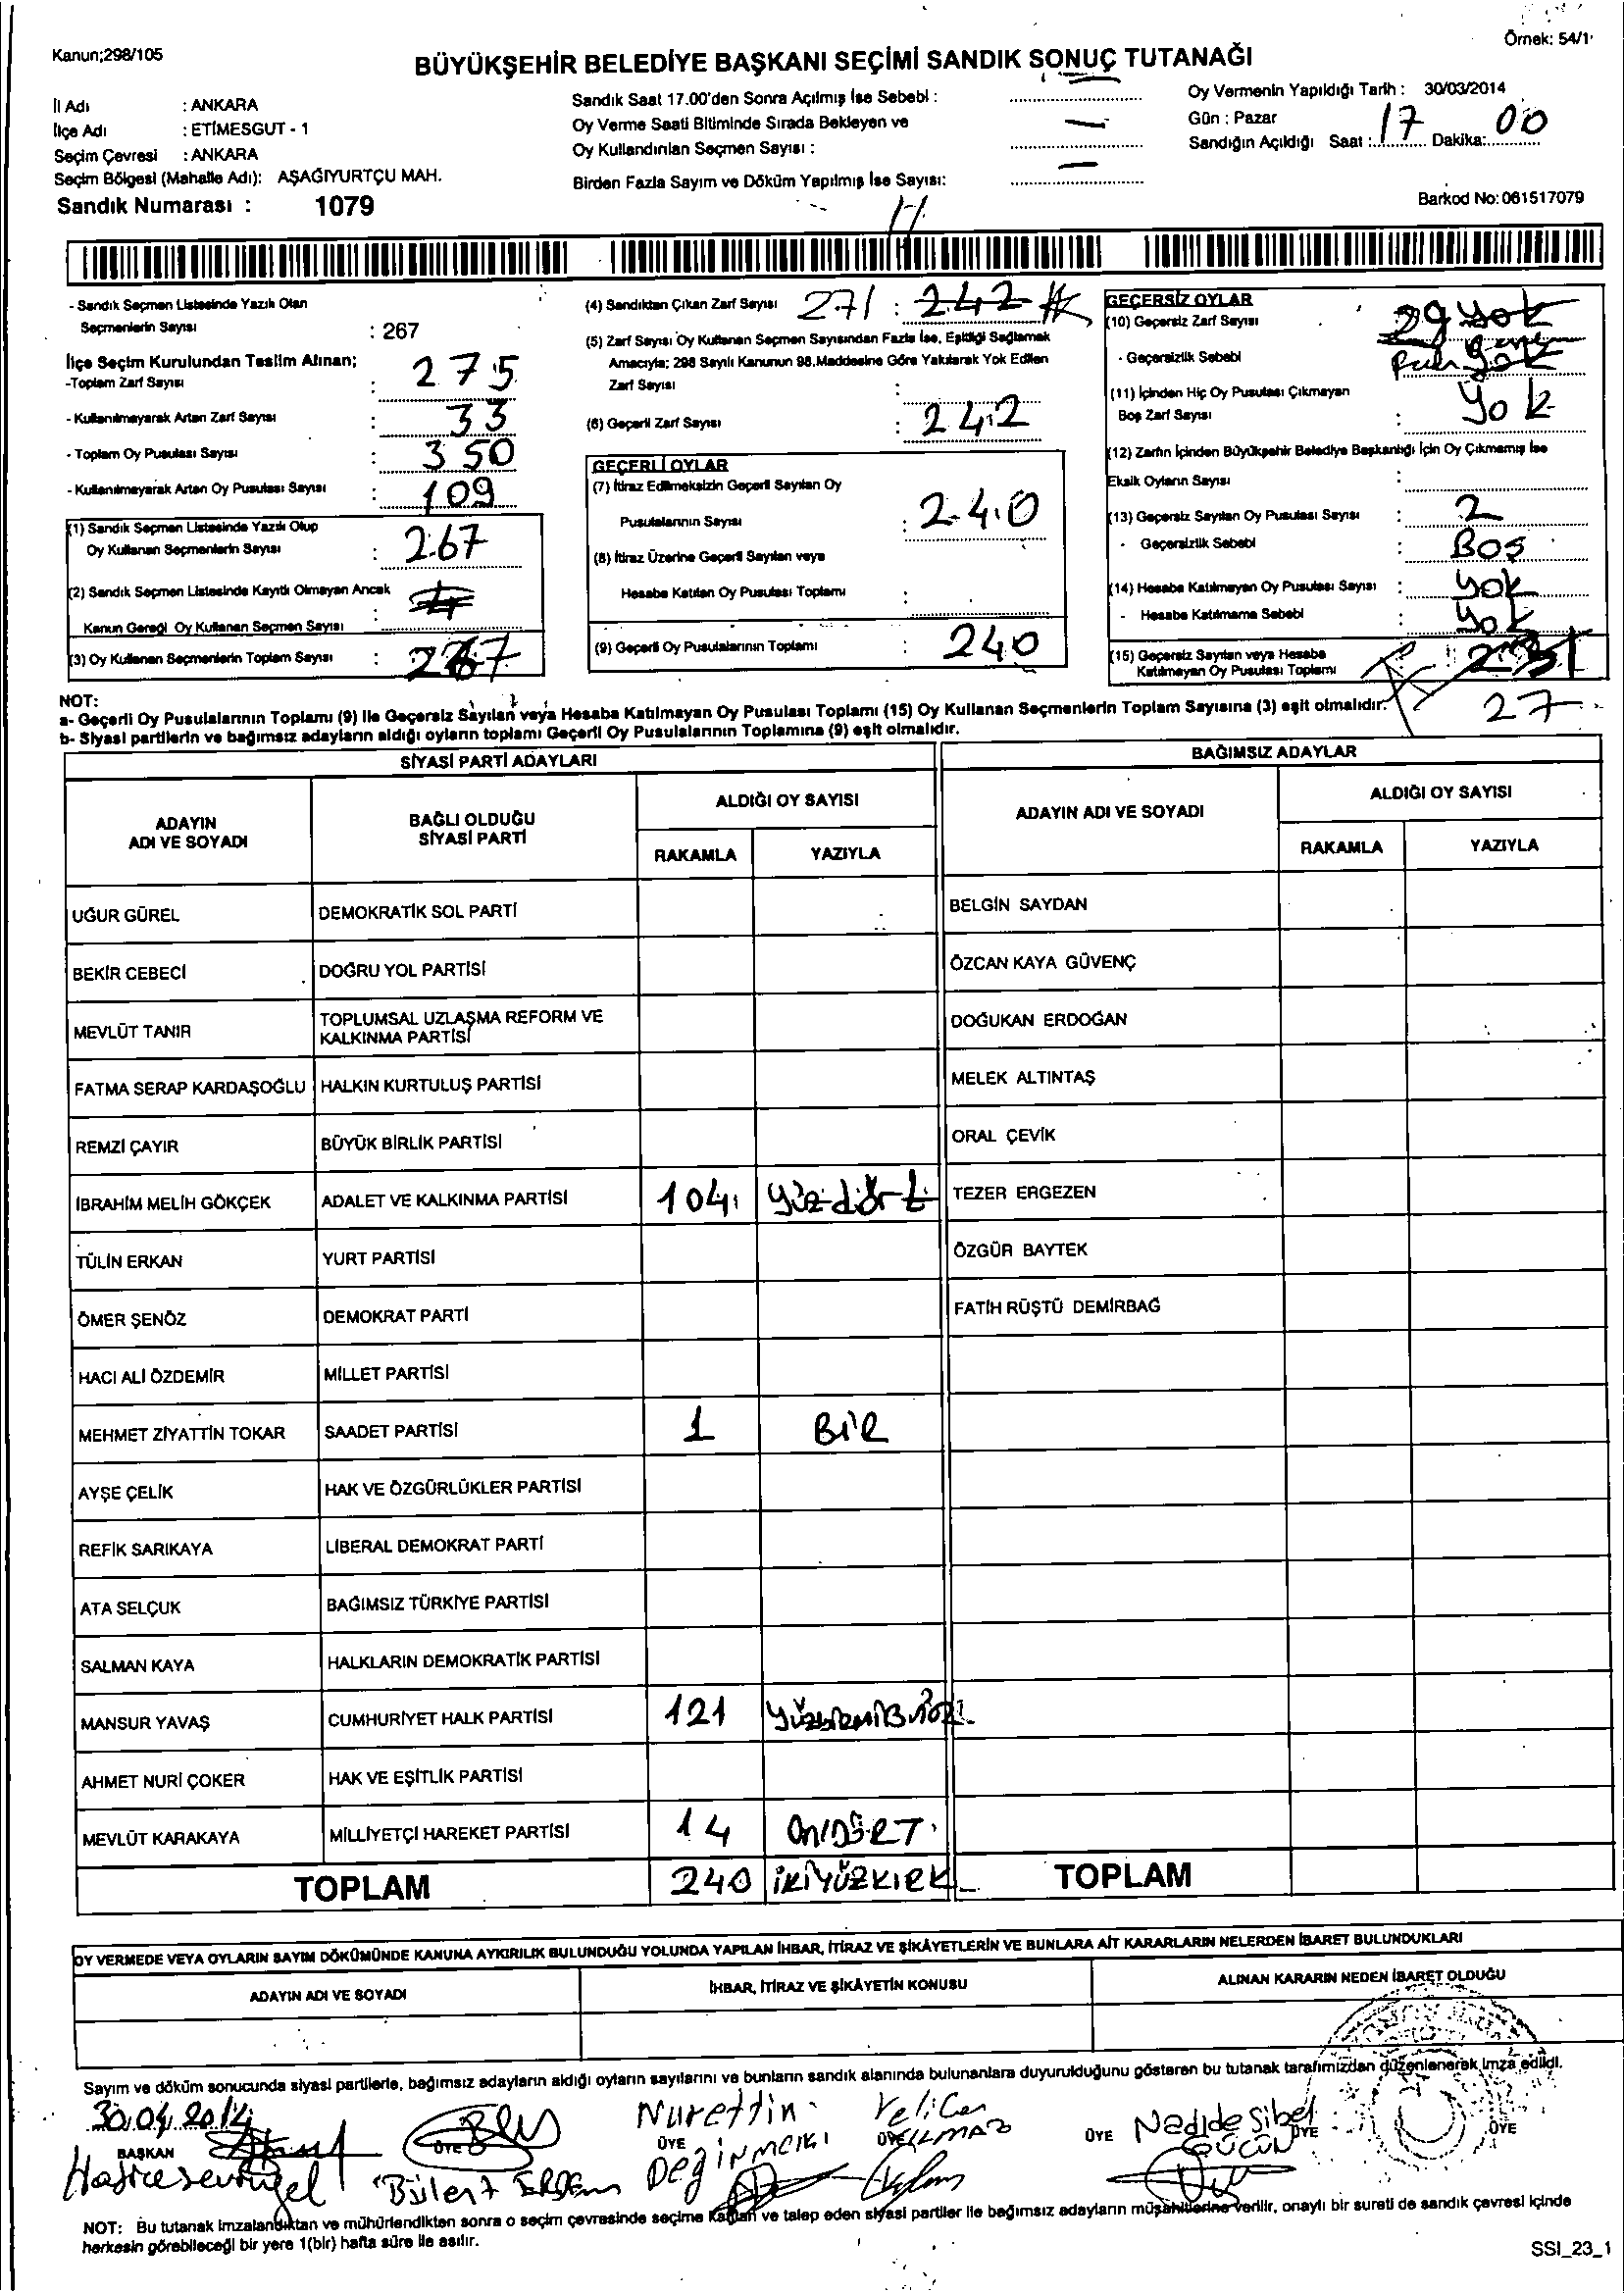 Kanun;298/105
Örnek: 54/1
BÜYÜKŞEHİR BELEDİYE BAŞKANI SEÇİMİ SANDIK SONUÇ TUTANAĞI
İl Adı : ANKARA
İlçe Adı : ETİMESGUT - 1
Seçim Çevresi : ANKARA
Seçim Bölgesi (Mahalle Adı): AŞAĞIYURTÇU MAH.
Sandık Numarası : 1079
Sandık Saat 17.00'den Sonra Açılmış İse Sebebi :
Oy Verme Saati Bitiminde Sırada Bekleyen ve
Oy Kullandırılan Seçmen Sayısı :
Birden Fazla Sayım ve Döküm Yapılmış İse Sayısı:
Oy Vermenin Yapıldığı Tarih : 30/03/2014
Gün : Pazar
Sandığın Açıldığı Saat : 17 Dakika: 00
Barkod No: 061517079
- Sandık Seçmen Listesinde Yazılı Olan
Seçmenlerin Sayısı : 267
İlçe Seçim Kurulundan Teslim Alınan;
-Toplam Zarf Sayısı : 275
- Kullanılmayarak Artan Zarf Sayısı : 33
- Toplam Oy Pusulası Sayısı : 350
- Kullanılmayarak Artan Oy Pusulası Sayısı : 109
(1) Sandık Seçmen Listesinde Yazılı Olup
Oy Kullanan Seçmenlerin Sayısı : 267
(2) Sandık Seçmen Listesinde Kayıtlı Olmayan Ancak
Kanun Gereği Oy Kullanan Seçmen Sayısı
(3) Oy Kullanan Seçmenlerin Toplam Sayısı : 267
(4) Sandıktan Çıkan Zarf Sayısı 271 : 242
(5) Zarf Sayısı Oy Kullanan Seçmen Sayısından Fazla İse, Eşitliği Sağlamak
Amacıyla; 298 Sayılı Kanunun 98.Maddesine Göre Yakılarak Yok Edilen
Zarf Sayısı :
(6) Geçerli Zarf Sayısı : 242
GEÇERLİ OYLAR
(7) İtiraz Edilmeksizin Geçerli Sayılan Oy
Pusulalarının Sayısı : 240
(8) İtiraz Üzerine Geçerli Sayılan veya
Hesaba Katılan Oy Pusulası Toplamı :
(9) Geçerli Oy Pusulalarının Toplamı : 240
GEÇERSİZ OYLAR
(10) Geçersiz Zarf Sayısı 29 yok
- Geçersizlik Sebebi yok
(11) İçinden Hiç Oy Pusulası Çıkmayan
Boş Zarf Sayısı : yok
(12) Zarfın İçinden Büyükşehir Belediye Başkanlığı İçin Oy Çıkmamış İse
Eksik Oyların Sayısı :
(13) Geçersiz Sayılan Oy Pusulası Sayısı : 2
- Geçersizlik Sebebi : BOŞ
(14) Hesaba Katılmayan Oy Pusulası Sayısı : yok
- Hesaba Katılmama Sebebi : yok
(15) Geçersiz Sayılan veya Hesaba
Katılmayan Oy Pusulası Toplamı
27
NOT:
a- Geçerli Oy Pusulalarının Toplamı (9) ile Geçersiz Sayılan veya Hesaba Katılmayan Oy Pusulası Toplamı (15) Oy Kullanan Seçmenlerin Toplam Sayısına (3) eşit olmalıdır.
b- Siyasi partilerin ve bağımsız adayların aldığı oyların toplamı Geçerli Oy Pusulalarının Toplamına (9) eşit olmalıdır.
SİYASİ PARTİ ADAYLARI
BAĞIMSIZ ADAYLAR
ADAYIN ADI VE SOYADI
BAĞLI OLDUĞU SİYASİ PARTİ
ALDIĞI OY SAYISI
RAKAMLA YAZIYLA
ADAYIN ADI VE SOYADI
ALDIĞI OY SAYISI
RAKAMLA YAZIYLA
UĞUR GÜREL DEMOKRATİK SOL PARTİ BELGİN SAYDAN
BEKİR CEBECİ DOĞRU YOL PARTİSİ ÖZCAN KAYA GÜVENÇ
MEVLÜT TANIR TOPLUMSAL UZLAŞMA REFORM VE KALKINMA PARTİSİ DOĞUKAN ERDOĞAN
FATMA SERAP KARDAŞOĞLU HALKIN KURTULUŞ PARTİSİ MELEK ALTINTAŞ
REMZİ ÇAYIR BÜYÜK BİRLİK PARTİSİ ORAL ÇEVİK
İBRAHİM MELİH GÖKÇEK ADALET VE KALKINMA PARTİSİ 104 yüzdört TEZER ERGEZEN
TÜLİN ERKAN YURT PARTİSİ ÖZGÜR BAYTEK
ÖMER ŞENÖZ DEMOKRAT PARTİ FATİH RÜŞTÜ DEMİRBAĞ
HACI ALİ ÖZDEMİR MİLLET PARTİSİ
MEHMET ZİYATTİN TOKAR SAADET PARTİSİ 1 BİR
AYŞE ÇELİK HAK VE ÖZGÜRLÜKLER PARTİSİ
REFİK SARIKAYA LİBERAL DEMOKRAT PARTİ
ATA SELÇUK BAĞIMSIZ TÜRKİYE PARTİSİ
SALMAN KAYA HALKLARIN DEMOKRATİK PARTİSİ
MANSUR YAVAŞ CUMHURİYET HALK PARTİSİ 121
AHMET NURİ ÇOKER HAK VE EŞİTLİK PARTİSİ
MEVLÜT KARAKAYA MİLLİYETÇİ HAREKET PARTİSİ 14 ONDÖRT
TOPLAM 240 İKİYÜZKIRK TOPLAM
OY VERMEDE VEYA OYLARIN SAYIM DÖKÜMÜNDE KANUNA AYKIRILIK BULUNDUĞU YOLUNDA YAPILAN İHBAR, İTİRAZ VE ŞİKÂYETLERİN VE BUNLARA AİT KARARLARIN NELERDEN İBARET BULUNDUKLARI
ADAYIN ADI VE SOYADI İHBAR, İTİRAZ VE ŞİKÂYETİN KONUSU ALINAN KARARIN NEDEN İBARET OLDUĞU
Sayım ve döküm sonucunda siyasi partilerle, bağımsız adayların aldığı oyların sayılarını ve bunların sandık alanında bulunanlara duyurulduğunu gösteren bu tutanak tarafımızdan düzenlenerek imza edildi.
30.04.2014 Nurettin Velican Nadide Sibel
BAŞKAN ÜYE ÜYE ÜYE ÜYE ÜYE ÜYE
Bülent Değirmenci YILMAZ GÜCÜN
NOT: Bu tutanak imzalandıktan ve mühürlendikten sonra o seçim çevresinde seçime katılan ve talep eden siyasi partiler ile bağımsız adayların müşahitlerine verilir, onaylı bir sureti de sandık çevresi içinde
herkesin görebileceği bir yere 1(bir) hafta süre ile asılır.
SSI_23_1